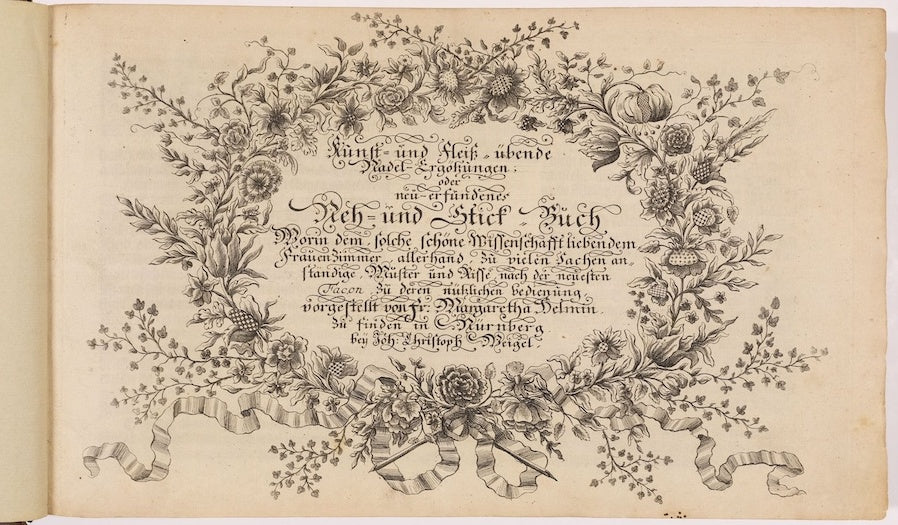 Kunst- und Fleiß-übende
Nadel-Ergötzungen;
oder
neu-erfundenes
Neh- und Stick-Buch
Worin dem solche schöne Wissenschafft liebendem
Frauenzimmer, allerhand, zu vielen Sachen an-
ständige, Muster und Risse, nach der neuesten
Facon, zu deren nützlichen bedienung
vorgestellt von Fr. Margaretha Helmin.
Zu finden in Nürnberg
bey Joh. Christoph Weigel.